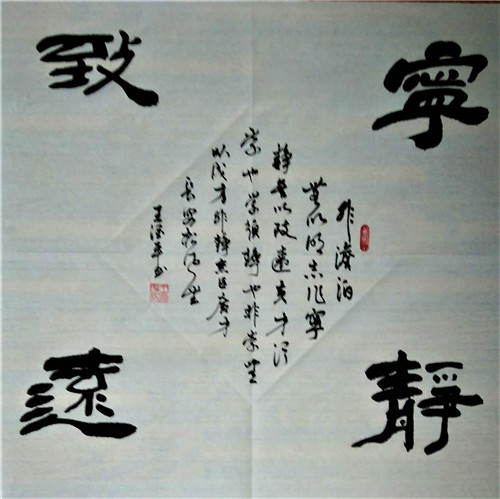 寧靜
致遠
非澹泊
無以明志非寧
靜無以致遠夫才須
學也學須靜也非學無
以成才非靜無以廣才
長安
王平书